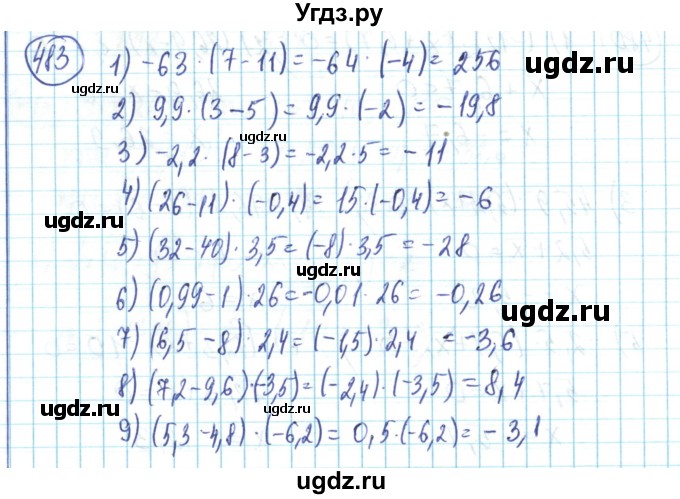 Угдз.ру
483
1) -63 · (7-11) = -64 · (-4) = 256
ugdz.ru ugdz.ru
2) 9,9 · (3-5) = 9,9 · (-2) = -19,8
ugdz.ru
3) -2,2 · (8-3) = -2,2 · 5 = -11
ugdz.ru
4) (26-11) · (-0,4) = 15 · (-0,4) = -6
ugdz.ru
5) (32-40) · 3,5 = (-8) · 3,5 = -28
ugdz.ru
6) (0,99-1) · 26 = -0,01 · 26 = -0,26
ugdz.ru ugdz.ru
7) (6,5-8) · 2,4 = (-1,5) · 2,4 = -3,6
ugdz.ru
8) (7,2-9,6) · (-3,5) = (-2,4) · (-3,5) = 8,4
ugdz.ru ugdz.ru
9) (5,3-4,8) · (-6,2) = 0,5 · (-6,2) = -3,1
ugdz.ru ugdz.ru